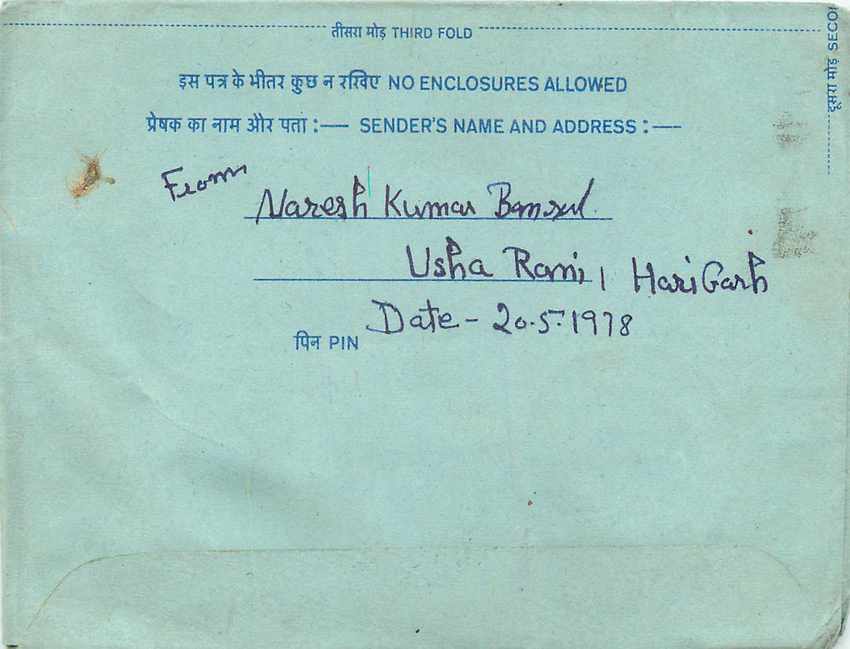 तीसरा मोड़ THIRD FOLD
इस पत्र के भीतर कुछ न रखिए NO ENCLOSURES ALLOWED
प्रेषक का नाम और पता :— SENDER'S NAME AND ADDRESS :—
From
Naresh Kumar Bansal
Usha Rani, HariGarh
Date - 20.5.1978
पिन PIN
दूसरा मोड़ SECO